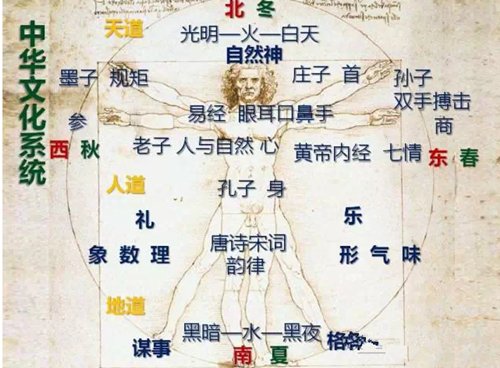 中华文化系统
北 冬
天道
光明—火—白天
自然神
墨子 规矩
庄子 首
孙子
双手搏击
易经 眼耳口鼻手
参
商
西 秋
老子 人与自然 心
黄帝内经 七情
东 春
人道
孔子 身
礼
乐
唐诗宋词
韵律
象 数 理
形 气 味
地道
黑暗—水—黑夜
谋事
南 夏